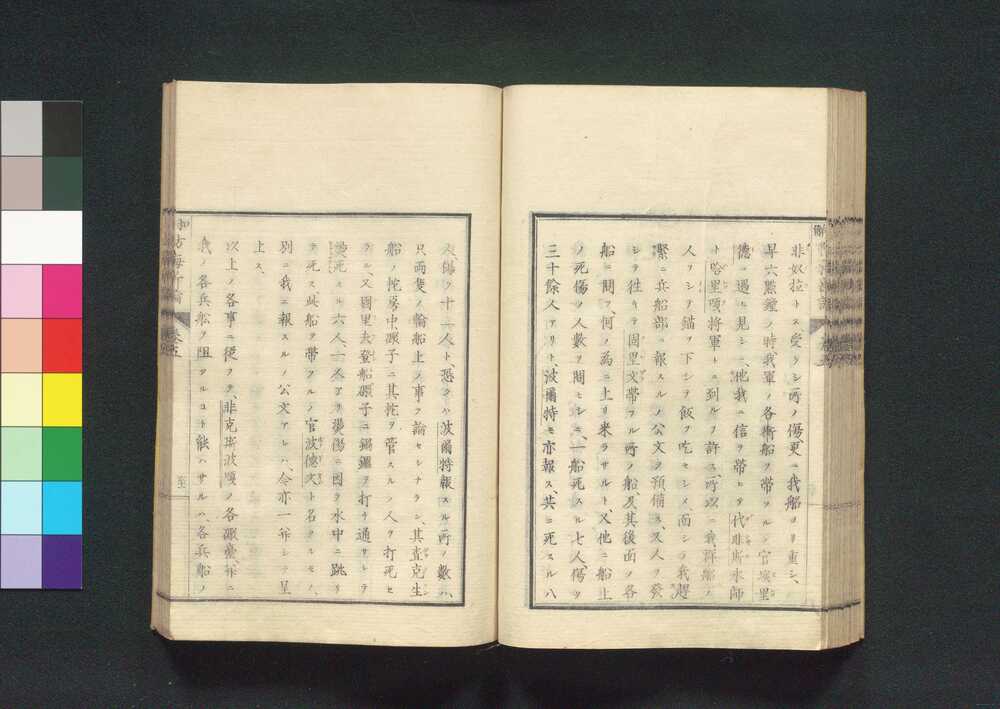 非奴拉トス受ケシ所ノ傷更ニ我船ヨリ重シ、
早六點鐘ノ時我軍ノ各衝船ヲ帶フルノ官壊里
德ニ過ヒ見シニ、他我ニ信ヲ帶ヒテ代非斯水師
ト哈里頓將軍トニ到ルヲ許ス所以ニ我群船ノ
人ヲシテ錨ヲ下シテ飯ヲ吃セシメ而シテ我趕
緊ニ兵船部ニ報スルノ公文ヲ預備ス、又人ヲ發
シテ往キテ固里文帶フル所ノ船及其後面ノ各
船ニ問フ、何ノ為ニ上リ來ラサルト又他ニ船上
ノ死傷ノ人數ヲ問ヒシニ、一船死スル七人傷ツ
三十餘人アリト波爾特モ亦報ス、共ニ死スル八
人、傷ク十二人ト、恐クハ波爾特報スル所ノ數ハ、
只兩隻ノ輪船上ノ事ヲ論セシナラン、其查克生
船ノ柁房中礮子ニ其柁ヲ管スルノ人ヲ打死セ
ラル、又固里夫登船礮子ニ鍋鑪ヲ打チ通サレテ
燙死スル六人、一人アリ燙傷ニ因テ水中ニ跳リ
テ死ス此船ヲ帶フルノ官波德文ト名クルモノ、
別ニ我ニ報スルノ公文アレハ、今亦一并シテ呈
上ス、
以上ノ各事ニ從フテ、非克斯波爾ノ各礮臺、并ニ
我ノ各兵船ヲ阻ツルコト能ハサルハ各兵船ノ
卷五